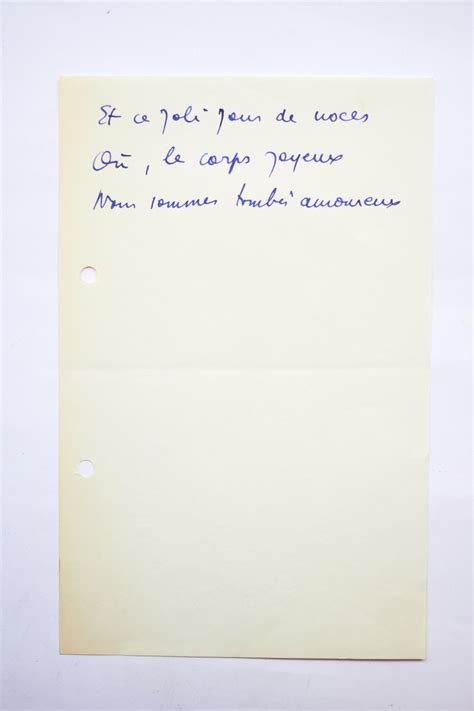 Et ce joli jour de noces
Où, le corps joyeux
Nous sommes tombés amoureux